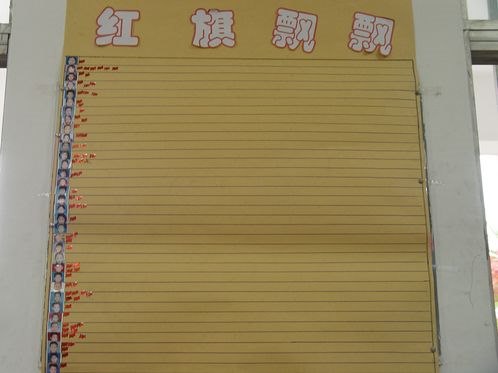 红旗飘飘